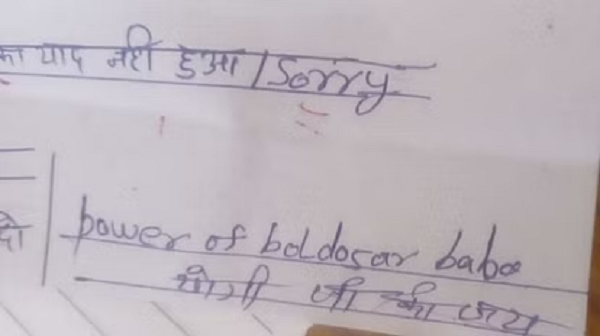 का याद नहीं हुआ / Sorry
दो power of boldosar baba
योगी जी की जय